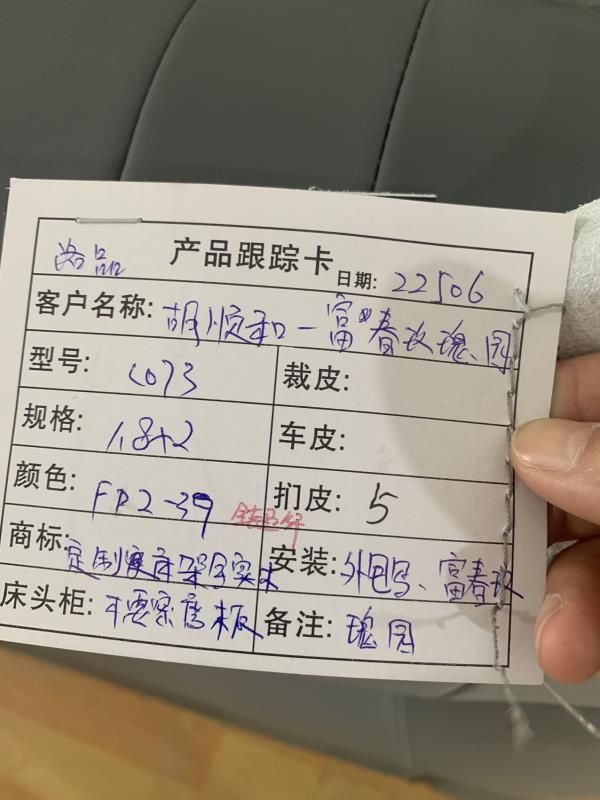 洛品 产品跟踪卡 日期: 22506
客户名称: 胡顺和一富春玫瑰园
型号: C073 裁皮:
规格: 1.8×2 车皮:
颜色: FP2-39 扪皮: 5
商标: 定制 安装: 外包写、富春玫
床头柜: 密度板 备注: 瑰园